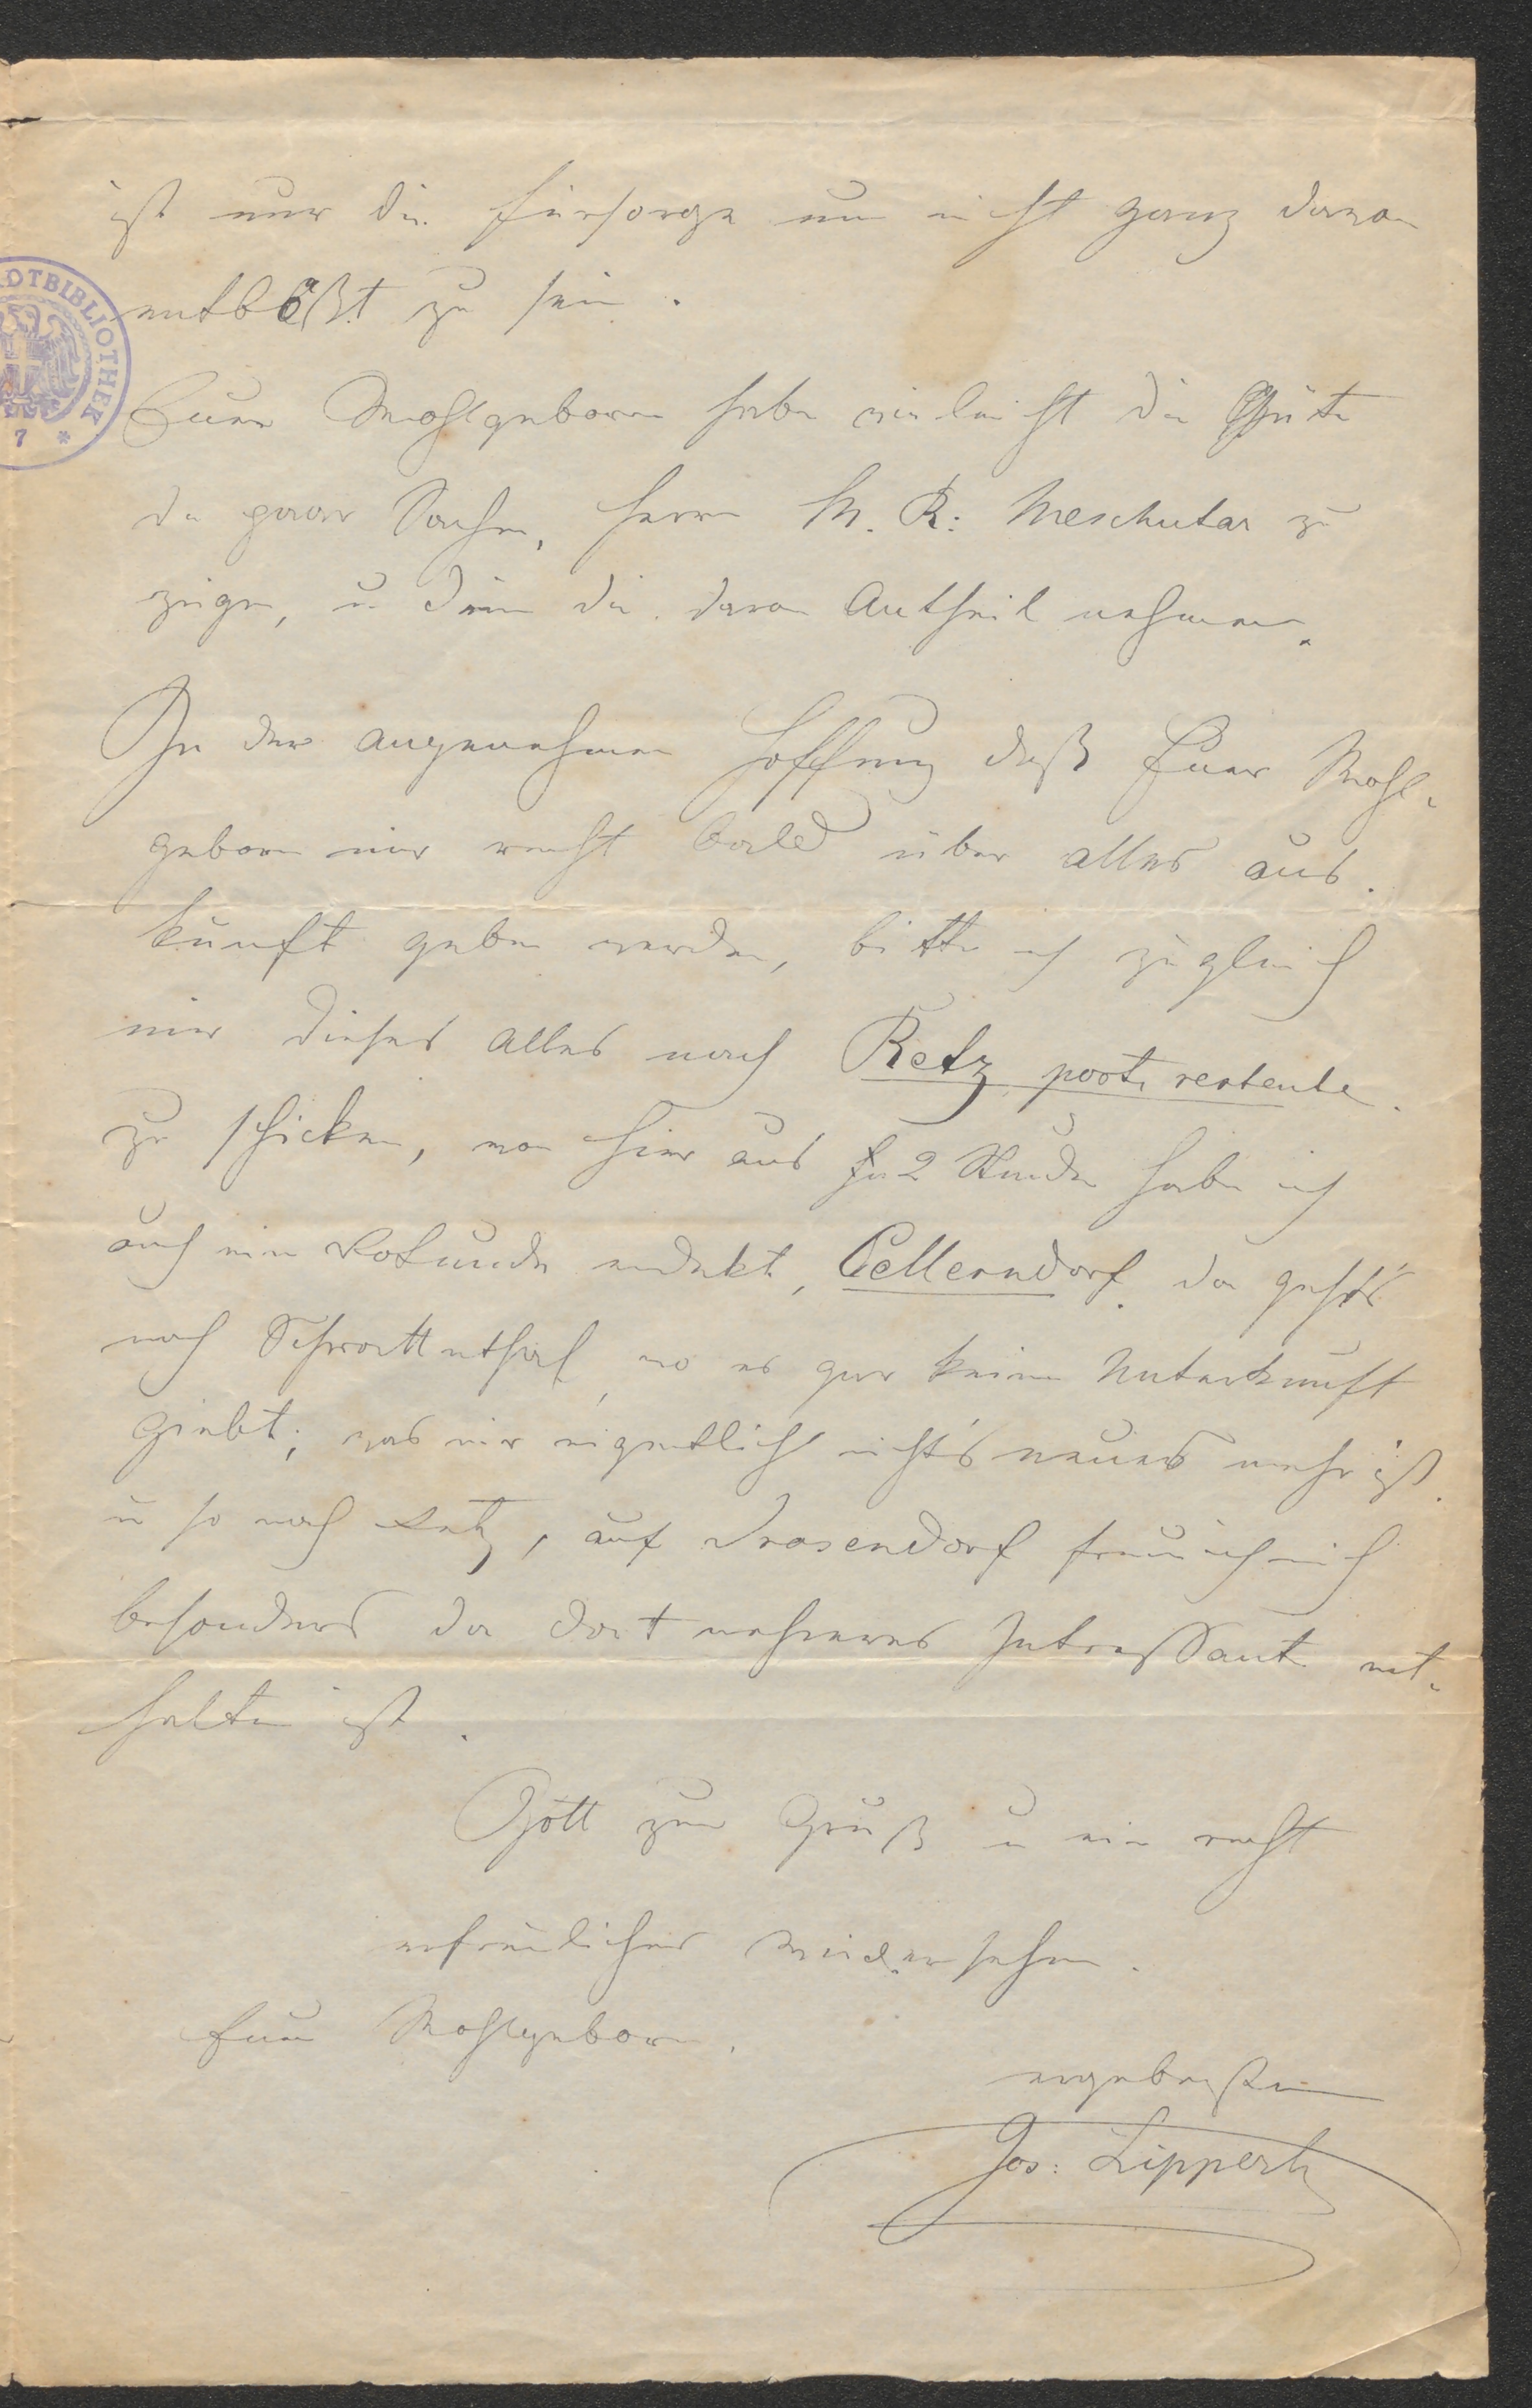 ist nur die Fürsorge um nicht ganz davon
entblößt zu sein.
Euer Wohlgeboren haben vieleicht die Güte
die paar Sachen, Herrn M. R: Meschutar zu
zeigen, u denen die daran Antheil nehmen.
In der angenehmen Hoffnung daß Euer Wohl-
geboren mir recht bald über alles aus-
kunft geben werden, bitte ich zugleich
mir dieses alles nach Retz poste restente
zu schicken, von hier aus in 2 Stunden habe ich
auch eine Rotunde endekt, Pellerndorf. da geht's
nach Schrattenthal, wo es gar keine Unterkunft
giebt; was mir eigentlich nichts neues mehr ist.
u so nach Retz, auf Drosendorf freue ich mich
besonders da dort mehreres Intressante ent-
halten ist.
Gott zum Gruß u ein recht
erfreuliches Wiedersehen.
Euer Wohlgeboren.
ergebenster
Jos: Lippert
DTBIBLIOTHEK
7 *